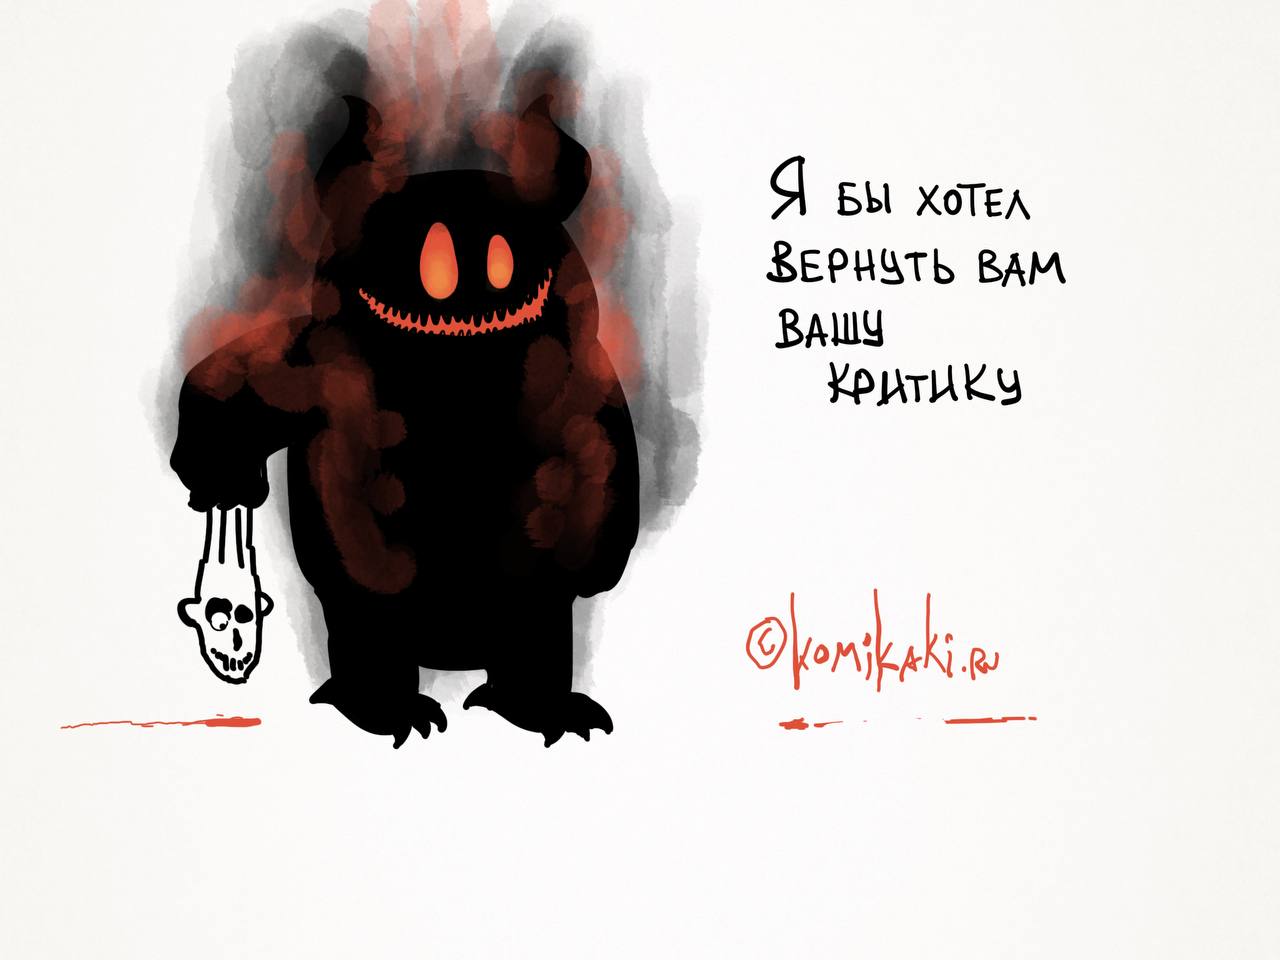 Я бы хотел
вернуть вам
вашу
критику
©komikaki.ru